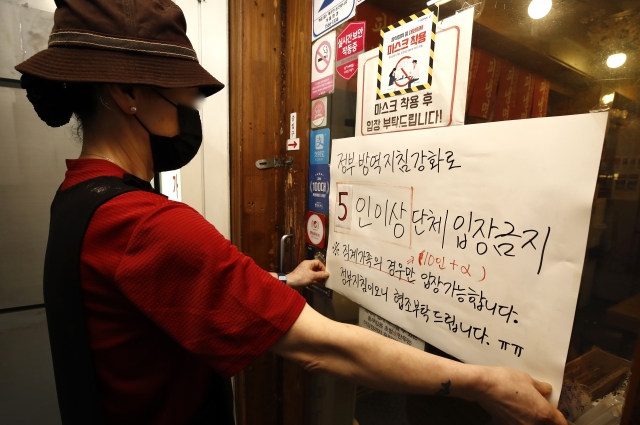 실시간 보안
작동중
마스크 착용
마스크 착용 후
입장 부탁드립니다!
100대
정부 방역지침강화로
5 인이상 단체 입장금지
※ 직계가족의 경우만 (10인+α) 입장가능합니다.
정부지침이오니 협조부탁드립니다. ㅠㅠ